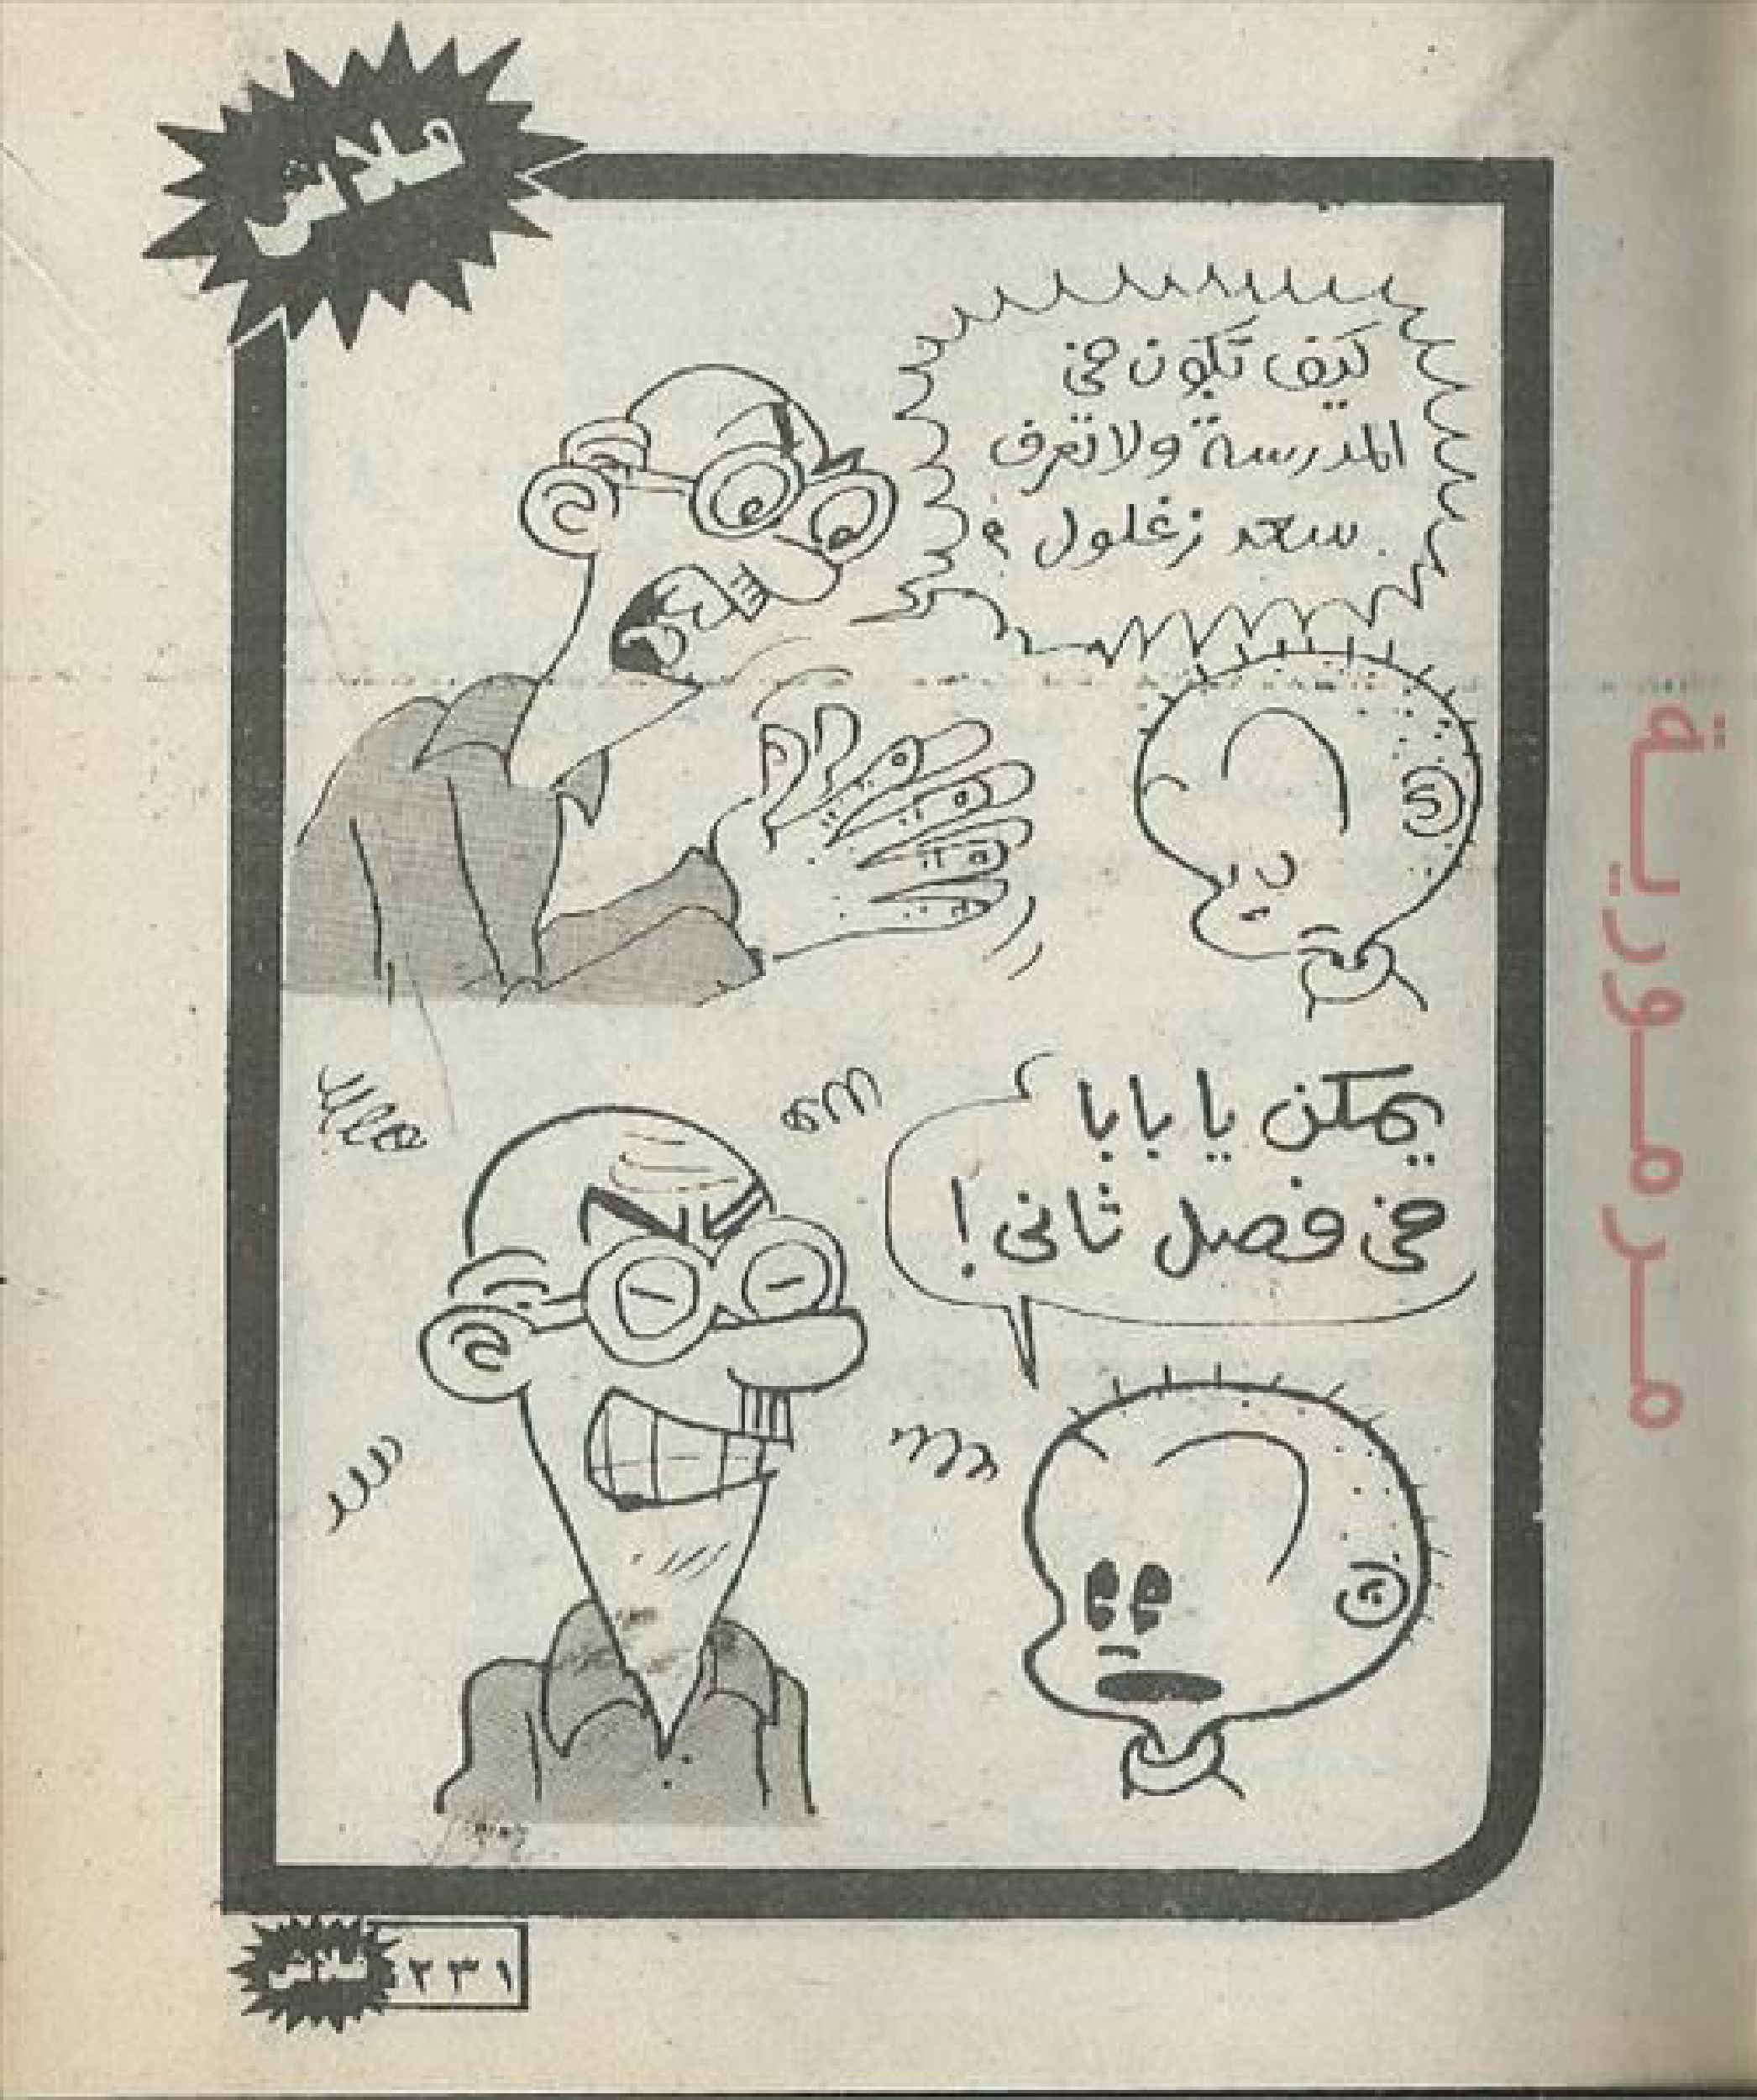 فلاش
كيف تكون في
المدرسة ولا تعرف
سعد زغلول ؟
يمكن يا بابا
في فصل ثاني !
فلاش ٢٣١
مرمورية